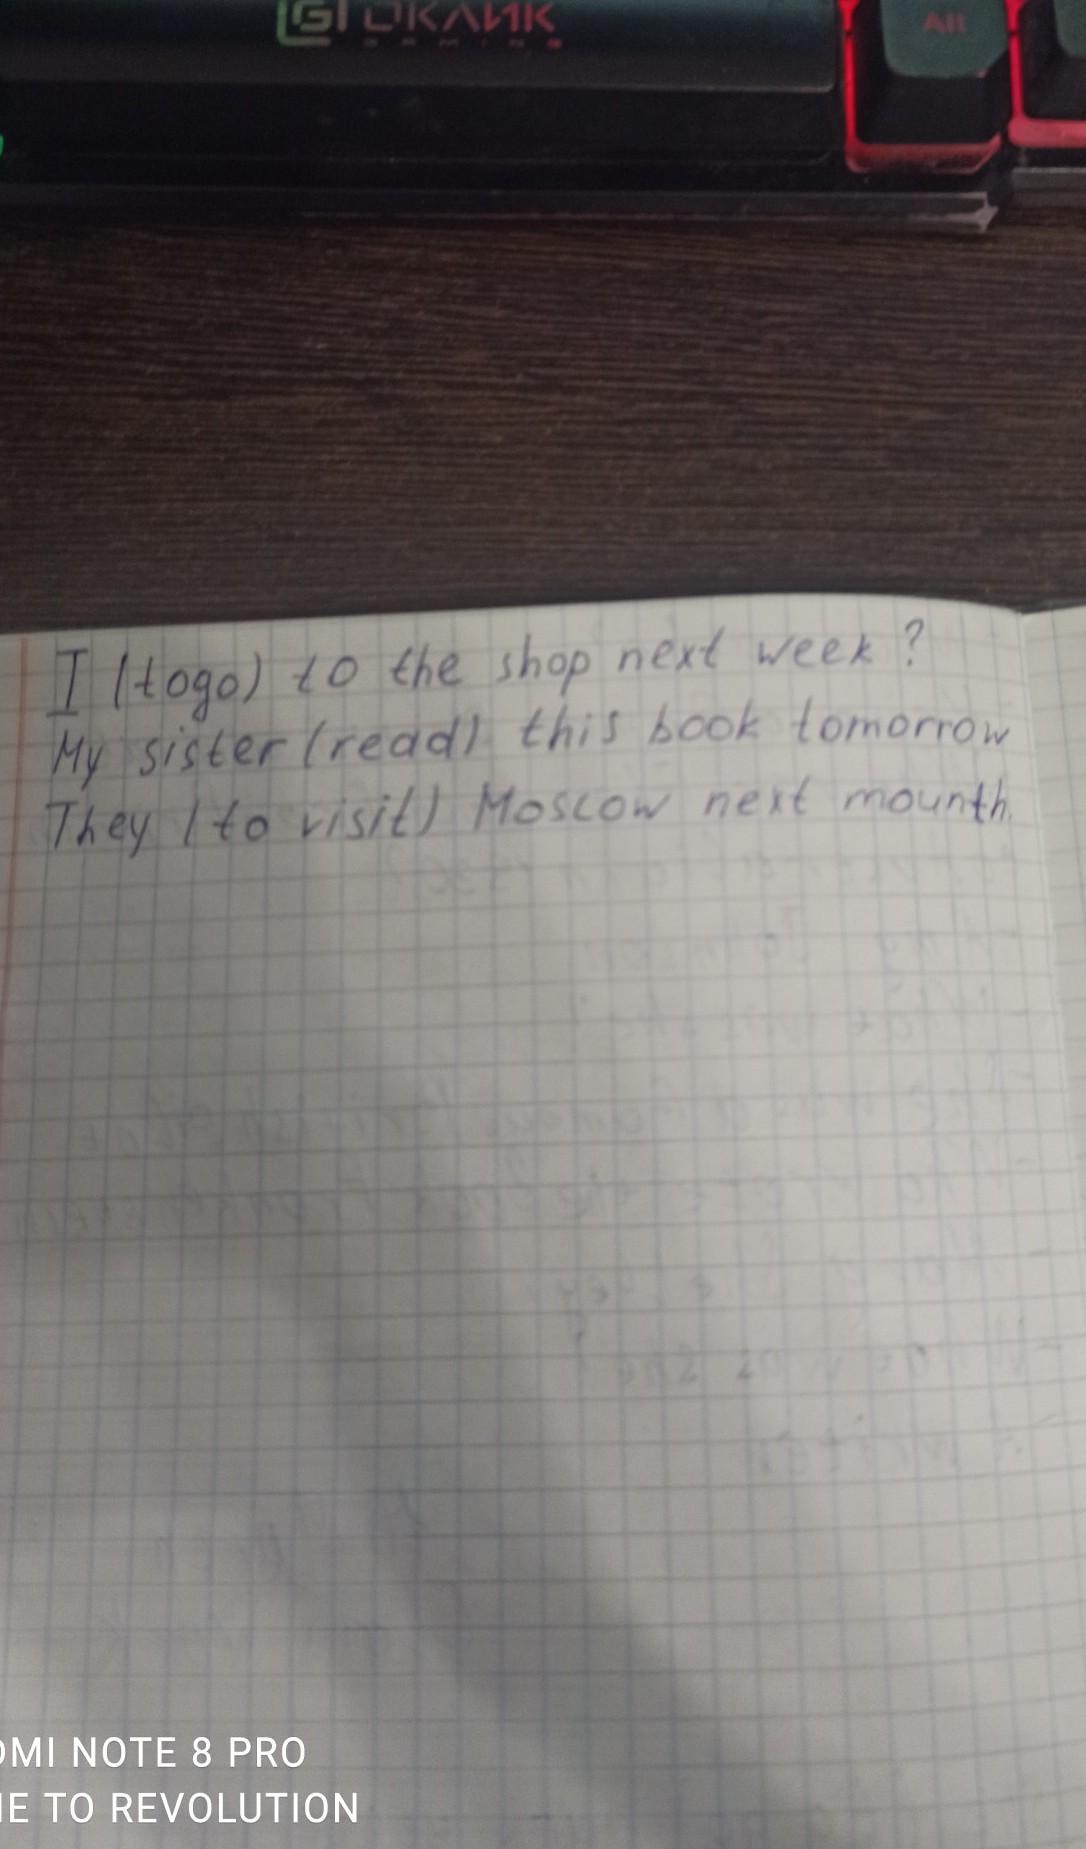 ОКЛИК
GAMING
Alt
I (to go) to the shop next week?
My sister (read) this book tomorrow
They (to visit) Moscow next mounth.
OMI NOTE 8 PRO
IE TO REVOLUTION